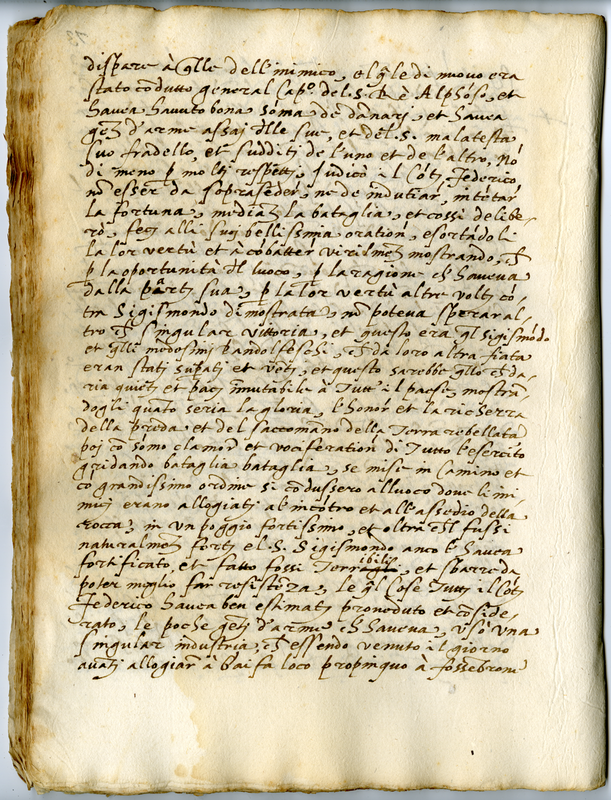 dispare à q̃lle dell'inimico, el q̃le di nuovo era
stato cõdutto general Cap.º del S. R è Alphõso, et
havea havuto bona sõma de danarj, et havea
gẽti d'arme assaj d̃lle sue, et del S. malatesta
suo fradello, et sudditj de l'uno et de l'altro, Nõ
di meno p moltj respettj, Judicò il Cõte Federico
nõ esser da soprasedér, ne de indutiár, in tẽtár
la fortuna, mediãte la bataglia, et cossì delibe-
rò, fece alli suoj bellissima oratiõn, esortãdoli
la lor vertù et à cõbattér virilmẽte mostrando, ch̃
p la oportunità d̃l luoco, p la ragione ch̃ haveva
dalla parte sua, p la lor vertù altre volte cõ-
tra Sigismõndo dimostrata, nõ poteva sperar al-
tro ch̃ singular vittoria, et questo era q̃l Sigismõdo
et q̃lli medesimj Pandolfeschi, ch̃ da loro altra fiata
eran stati supati et vẽti, et questo sarebbe q̃llo ch̃ da-
ria quiete et pace inmutabile à Tutt'il paese, mostrã-
dogli quãto seria la gloria, l'honor et la richezza
della preda, et del saccomãno della Terra rebellata
poj cõ sõmo clamór et vociferatiõn di Tutto l'esercito
gridando bataglia bataglia, se mise in Camino et
cõ grandissimo ordine si cõdussero al luoco dove li ini-
micj erano allogiatj al incõtro et all'assedio della
rocca, in un poggio fortissimo, et oltra ch̃l fussi
naturalmẽte forte el S. Sigismondo anco l'havea
fortificato, et fatto fossi Terribilj, et sbarre da
poter meglio far resistẽza, le q̃l Cose Tutte il Cõte
Federico havea ben estimate proveduto et cõside-
rato, le poche gẽtj d'arme ch̃ haveva, usò una
singular industria, ch̃ essendo venuto il giorno
avãti allogiar à loco propinquo à fossebrone